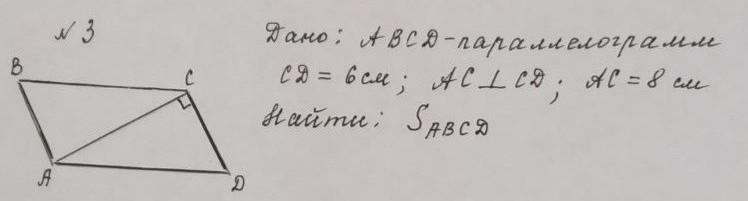 № 3
Дано: ABCD - параллелограмм
CD = 6 см; AC ⊥ CD; AC = 8 см
Найти: S_ABCD
B
C
A
D